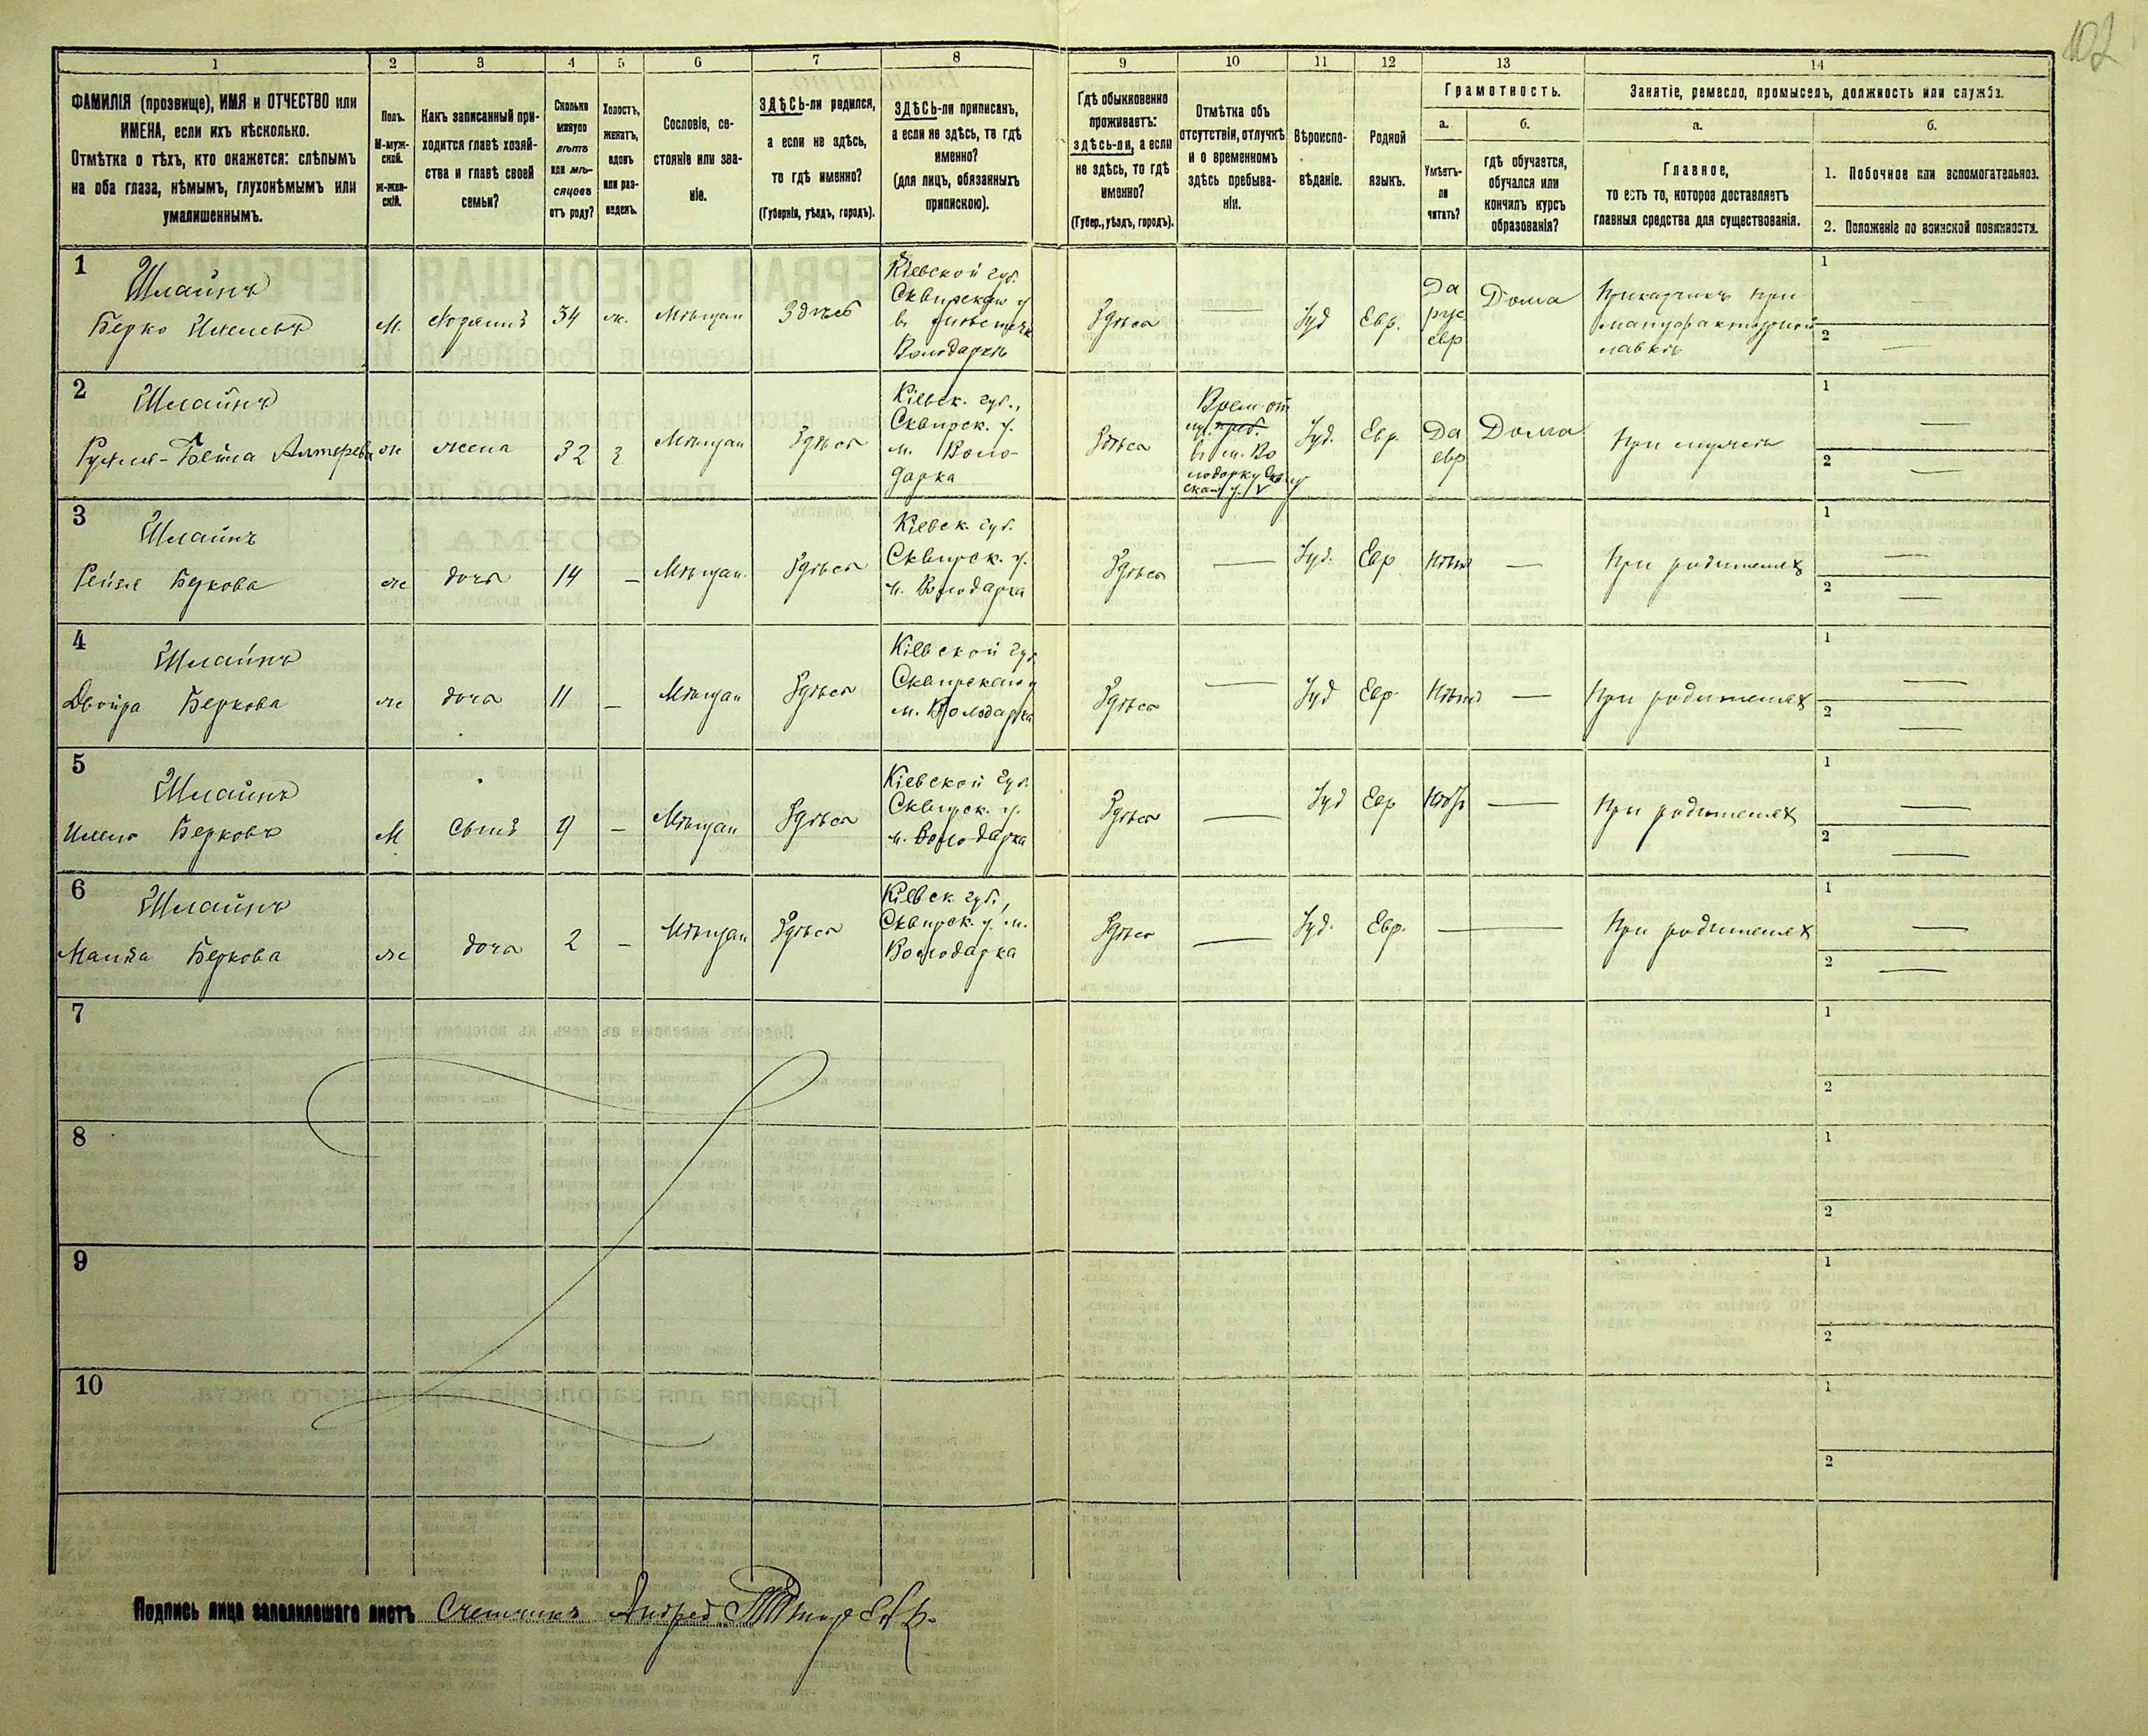 102
1 2 3 4 5 6 7 8 9 10 11 12 13 14
ФАМИЛІЯ (прозвище), ИМЯ и ОТЧЕСТВО или
ИМЕНА, если ихъ нѣсколько.
Отмѣтка о тѣхъ, кто окажется: слѣпымъ
на оба глаза, нѣмымъ, глухонѣмымъ или
умалишеннымъ.
Полъ.
М-муж-
ской.
Ж-жен-
скій.
Какъ записанный при-
ходится главѣ хозяй-
ства и главѣ своей
семьи?
Сколько
минуло
лѣтъ
или мѣ-
сяцевъ
отъ роду?
Холостъ,
женатъ,
вдовъ
или раз-
веденъ.
Сословіе, со-
стояніе или зва-
ніе.
ЗДѢСЬ-ли родился,
а если не здѣсь,
то гдѣ именно?
(Губернія, уѣздъ, городъ).
ЗДѢСЬ-ли приписанъ,
а если не здѣсь, то гдѣ
именно?
(для лицъ, обязанныхъ
припискою).
Гдѣ обыкновенно
проживаетъ:
здѣсь-ли, а если
не здѣсь, то гдѣ
именно?
(Губер., уѣздъ, городъ).
Отмѣтка объ
отсутствіи, отлучкѣ
и о временномъ
здѣсь пребыва-
ніи.
Вѣроиспо-
вѣданіе.
Родной
языкъ.
Грамотность.
а.
Умѣетъ-
ли
читать?
б.
гдѣ обучается,
обучался или
кончилъ курсъ
образованія?
Занятіе, ремесло, промыселъ, должность или служба.
а.
Главное,
то есть то, которое доставляетъ
главныя средства для существованія.
б.
1. Побочное или вспомогательное.
2. Положеніе по воинской повинности.
1
Шлаинъ
Берко
М.
Хозяинъ
34
ж.
Мѣщан
Здѣсь
Кіевской губ.
Сквирскаго у
въ мѣстечк
Володаркѣ
Здѣсь
—
Іуд
Евр.
Да
рус
евр
Дома
Прикащикъ при
мануфактурной
лавкѣ
1 —
2 —
2
Шлаинъ
Бейла Алтерева
ж
жена
32
З
Мѣщан
Здѣсь
Кіевск. губ.,
Сквирск. у.
м. Воло-
дарка
Здѣсь
Врем. от
преб.
Во
лодарку
Іуд.
Евр.
Да
евр
Дома
При мужѣ
1 —
2 —
3
Шлаинъ
Рейзя Беркова
ж
дочь
14
—
Мѣщан.
Здѣсь
Кіевск. губ.
Сквирск. у.
м. Володарка
Здѣсь
—
Іуд.
Евр
Нѣтъ
—
При родителях
1 —
2 —
4
Шлаинъ
Двойра Беркова
ж
дочь
11
—
Мѣщан
Здѣсь
Кіевской губ
Сквирскаго у
м. Володарка
Здѣсь
—
Іуд
Евр
Нѣтъ
—
При родителях
1 —
2 —
5
Шлаинъ
Берковъ
М
Сынъ
9
—
Мѣщан
Здѣсь
Кіевской губ.
Сквирск. у.
м. Володарка
Здѣсь
—
Іуд
Евр
Нѣтъ
—
При родителях
1 —
2 —
6
Шлаинъ
Беркова
ж
дочь
2
—
Мѣщан
Здѣсь
Кіевск губ.,
Сквирск. у. м.
Володарка
Здѣсь
—
Іуд.
Евр.
—
При родителях
1 —
2 —
7
1
2
8
1
2
9
1
2
10
1
2
Подпись лица заполнившаго листъ Счетчикъ Андрей